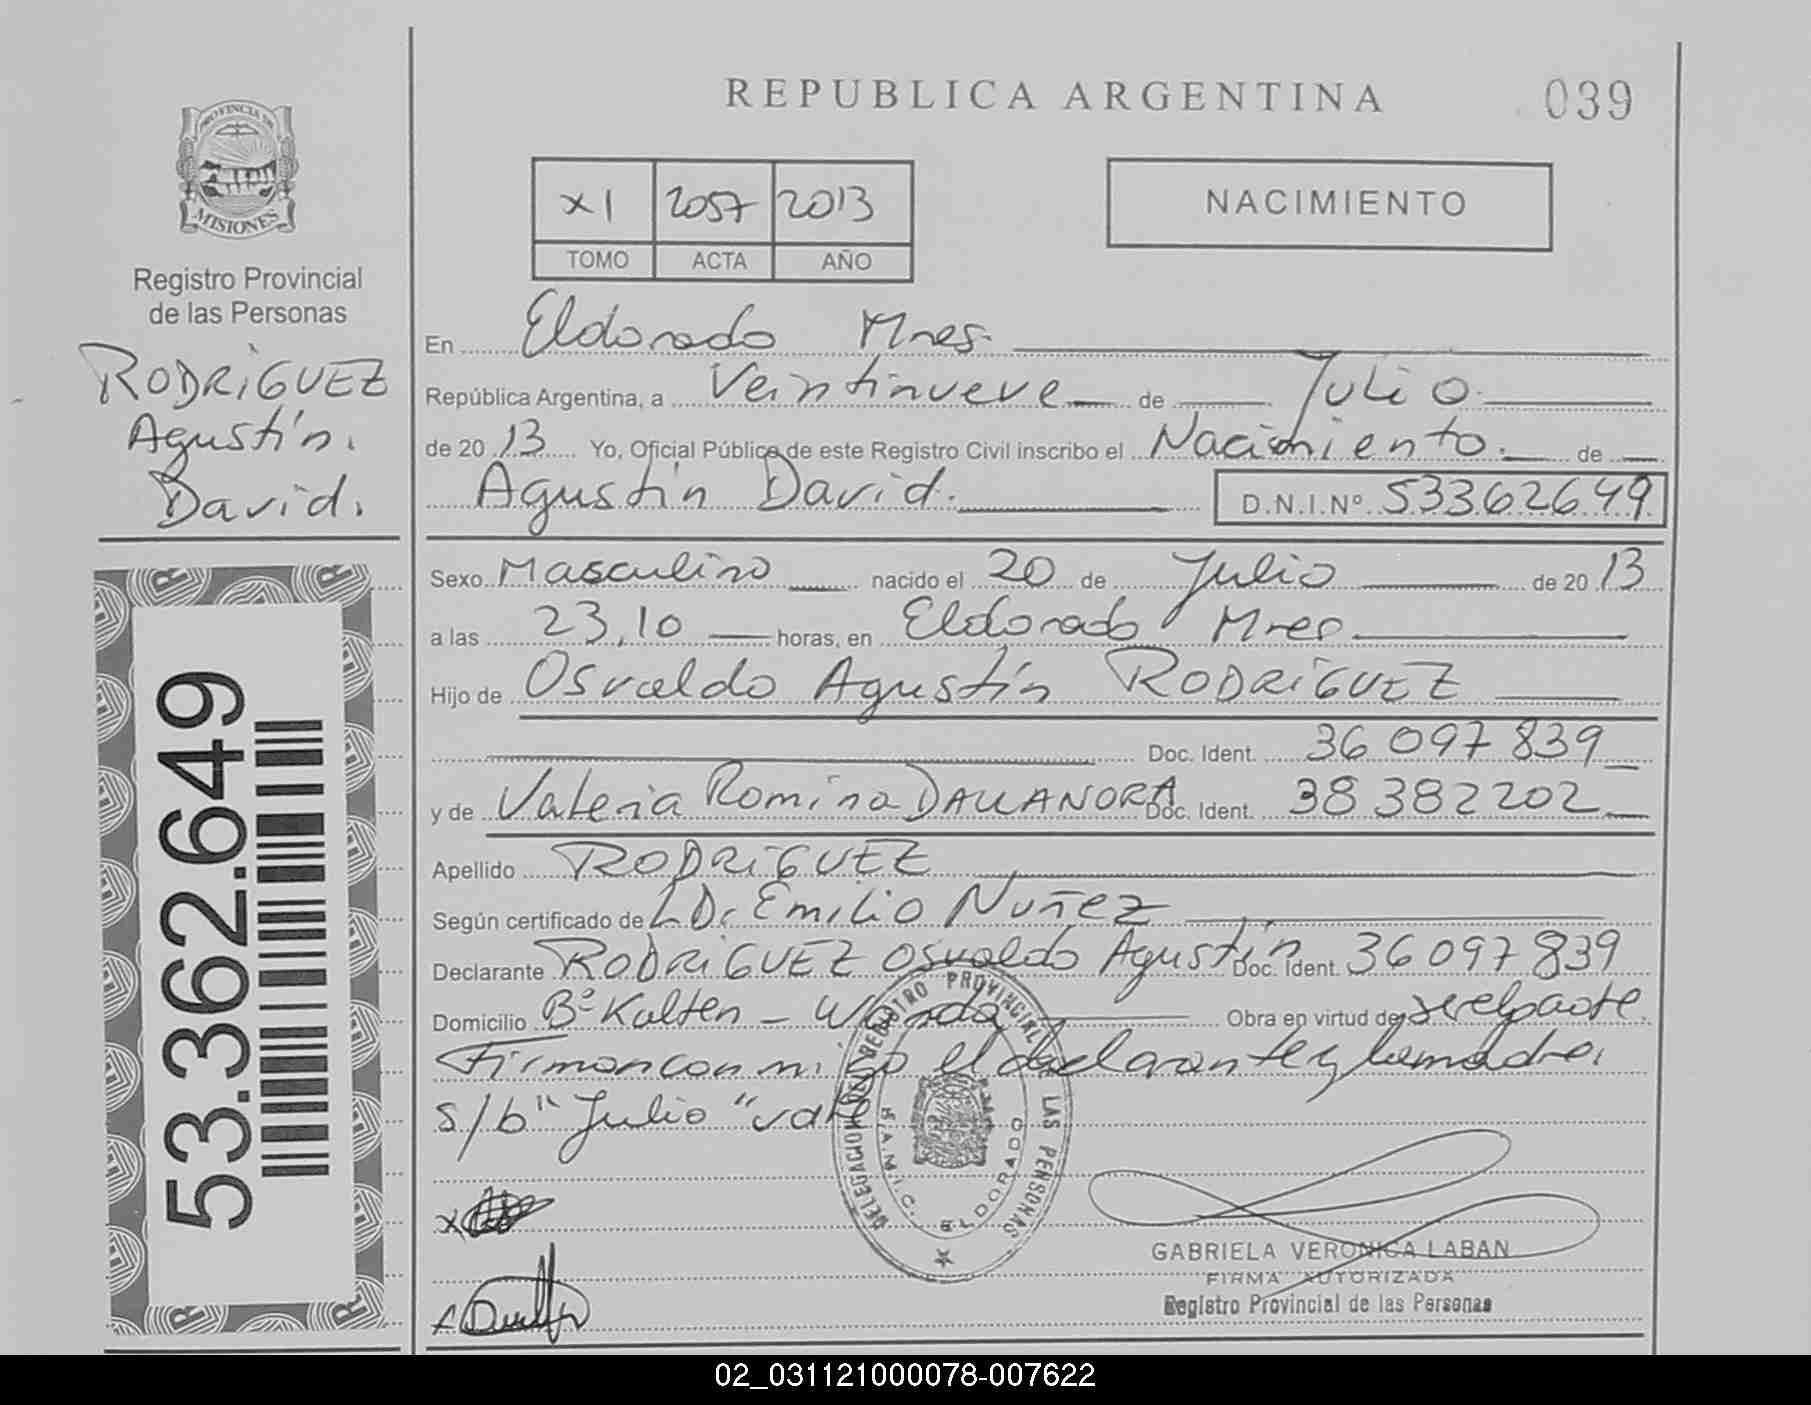 REPUBLICA ARGENTINA
039
PROVINCIA DE
MISIONES
Registro Provincial
de las Personas
RODRíGUEZ
Agustín.
David.
53.362.649
XI 2057 2013
TOMO ACTA AÑO
NACIMIENTO
En Eldorado Mnes.
República Argentina, a Veintinueve de Julio
de 20 13 Yo, Oficial Público de este Registro Civil inscribo el Nacimiento. de
Agustín David. D.N.I.Nº 53362649
Sexo Masculino nacido el 20 de Julio de 20 13
a las 23,10 horas, en Eldorado Mnes.
Hijo de Osvaldo Agustín RODRíGUEZ
Doc. Ident. 36 097 839
y de Valeria Romina DALLANORA Doc. Ident. 38 382 202
Apellido RODRíGUEZ
Según certificado de Dr. Emilio Nuñez
Declarante RODRíGUEZ Osvaldo Agustín Doc. Ident. 36 097 839
Domicilio Bº Kalten - Wanda Obra en virtud de ser el padre.
Firman conmigo el declarante y la madre.
s/b "Julio" vale
DELEGACION DEL REGISTRO PROVINCIAL DE LAS PERSONAS
S.A.M.I.C. ELDORADO
GABRIELA VERONICA LABAN
FIRMA AUTORIZADA
Registro Provincial de las Personas
02_031121000078-007622